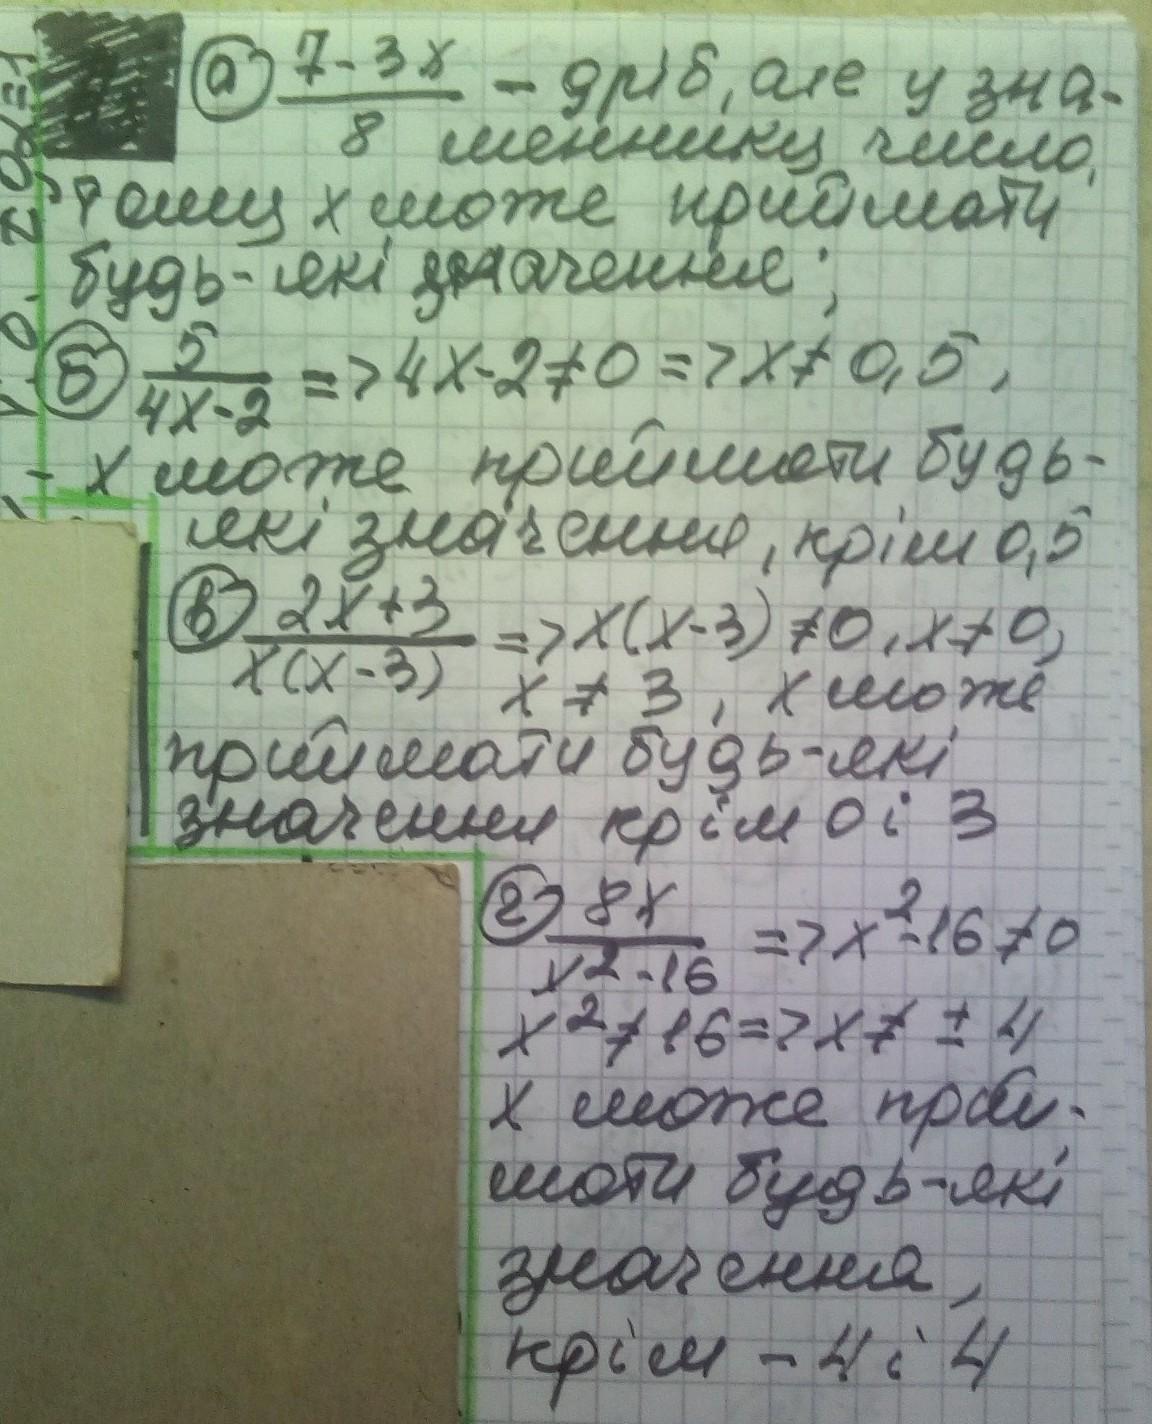 а) 7-3x/8 - дріб, але у зна-
менннику число,
тому x може приймати
будь-які значення;
б) 5/4x-2 => 4x-2≠0 => x≠0,5,
- x може приймати будь-
які значення, крім 0,5
в) 2x+3/x(x-3) => x(x-3)≠0, x≠0,
x≠3, x може
приймати будь-які
значення крім 0 і 3
г) 8x/x²-16 => x²-16≠0
x²≠16=>x≠±4
x може прий-
мати будь-які
значення,
крім -4 і 4